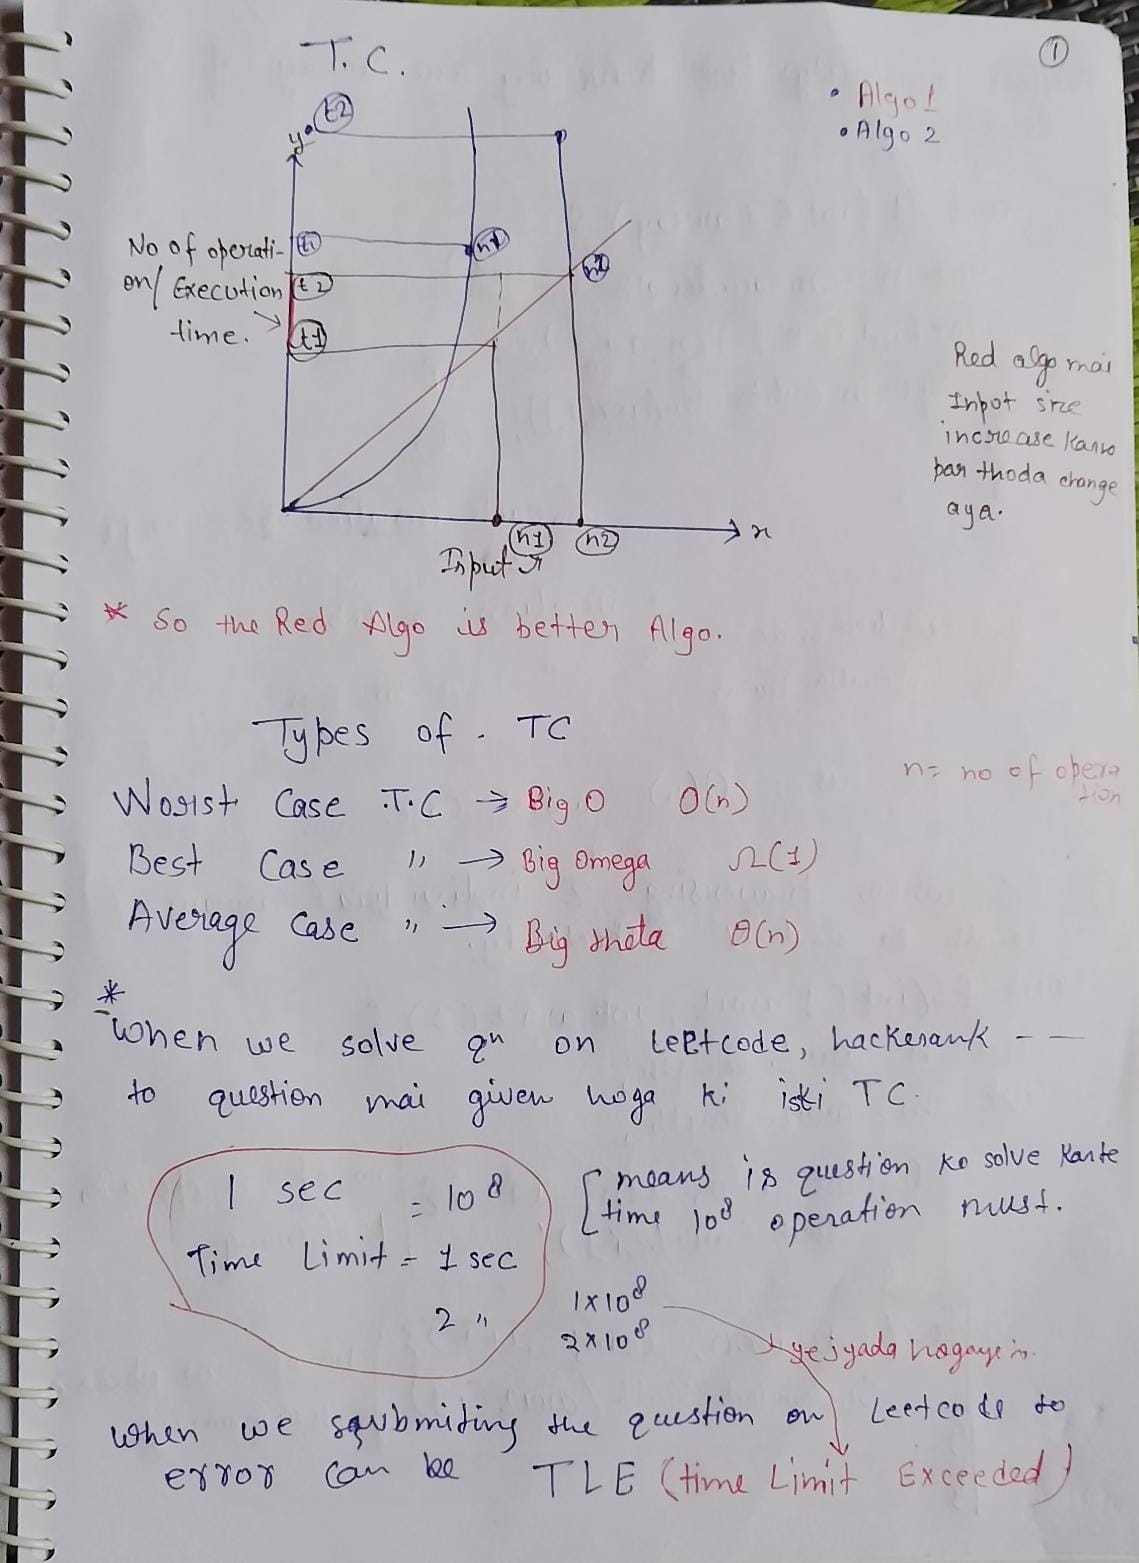 T.C.
1
• Algo 1
• Algo 2
t2
y
No of operati-
on/ Execution
time.
t1
t2
t1
n1
n2
x
n1
n2
Input
Red algo mai
Inpot size
increase karne
par thoda change
aya.
* So the Red Algo is better Algo.
Types of . TC
n = no of opera
tion
Worst Case .T.C → Big O O(n)
Best Case " → Big Omega Ω(1)
Average Case " → Big theta θ(n)
*
When we solve qn on leetcode, hackerank - —
to question mai given hoga ki iski TC.
1 sec = 10^8
Time Limit = 1 sec
2 "
[means is question ko solve karte
time 10^8 operation must.
1×10^8
2×10^8
ye jyada hogaye
when we squbmiting the question on Leetcode to
error can be TLE (time Limit Exceeded)